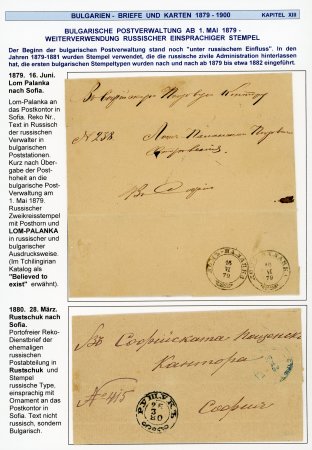 BULGARIEN - BRIEFE UND KARTEN 1879 - 1900
KAPITEL XIII
BULGARISCHE POSTVERWALTUNG AB 1. MAI 1879 -
WEITERVERWENDUNG RUSSISCHER EINSPRACHIGER STEMPEL
Der Beginn der bulgarischen Postverwaltung stand noch "unter russischem Einfluss". In den
Jahren 1879-1881 wurden Stempel verwendet, die die russische zivile Administration hinterlassen
hat, die ersten bulgarischen Stempeltypen wurden nach und nach ab 1879 bis etwa 1882 eingeführt.
1879. 16. Juni.
Lom Palanka
nach Sofia.
Lom-Palanka an
das Postkontor in
Sofia. Reko Nr..
Text in Russisch
der russischen
Verwalter in
bulgarischen
Poststationen.
Kurz nach Über-
gabe der Post-
hoheit an die
bulgarische Post-
Verwaltung am
1. Mai 1879.
Russischer
Zweikreisstempel
mit Posthorn und
LOM-PALANKA
in russischer und
bulgarischer
Ausdrucksweise.
(Im Tchilingirian
Katalog als
"Believed to
exist" erwähnt).
Въ
№ 238
Въ
16
VI
79
16
VI
79
1880. 28. März.
Rustschuk nach
Sofia.
Portofreier Reko-
Dienstbrief der
ehemaligen
russischen
Postabteilung in
Rustschuk und
Stempel
russische Type,
einsprachig mit
Ornament an das
Postkontor in
Sofia. Text nicht
russisch, sondern
Bulgarisch.
Въ Софийската Пощенска
Кантора
№ 415
София
РУЩУКЪ